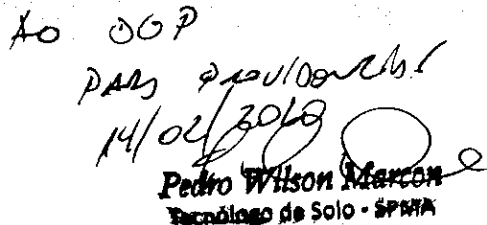 Ao DOP
PARA PROVIDÊNCIAS
14/02/20
Pedro Wilson Marcon
Tecnólogo de Solo - SPMA